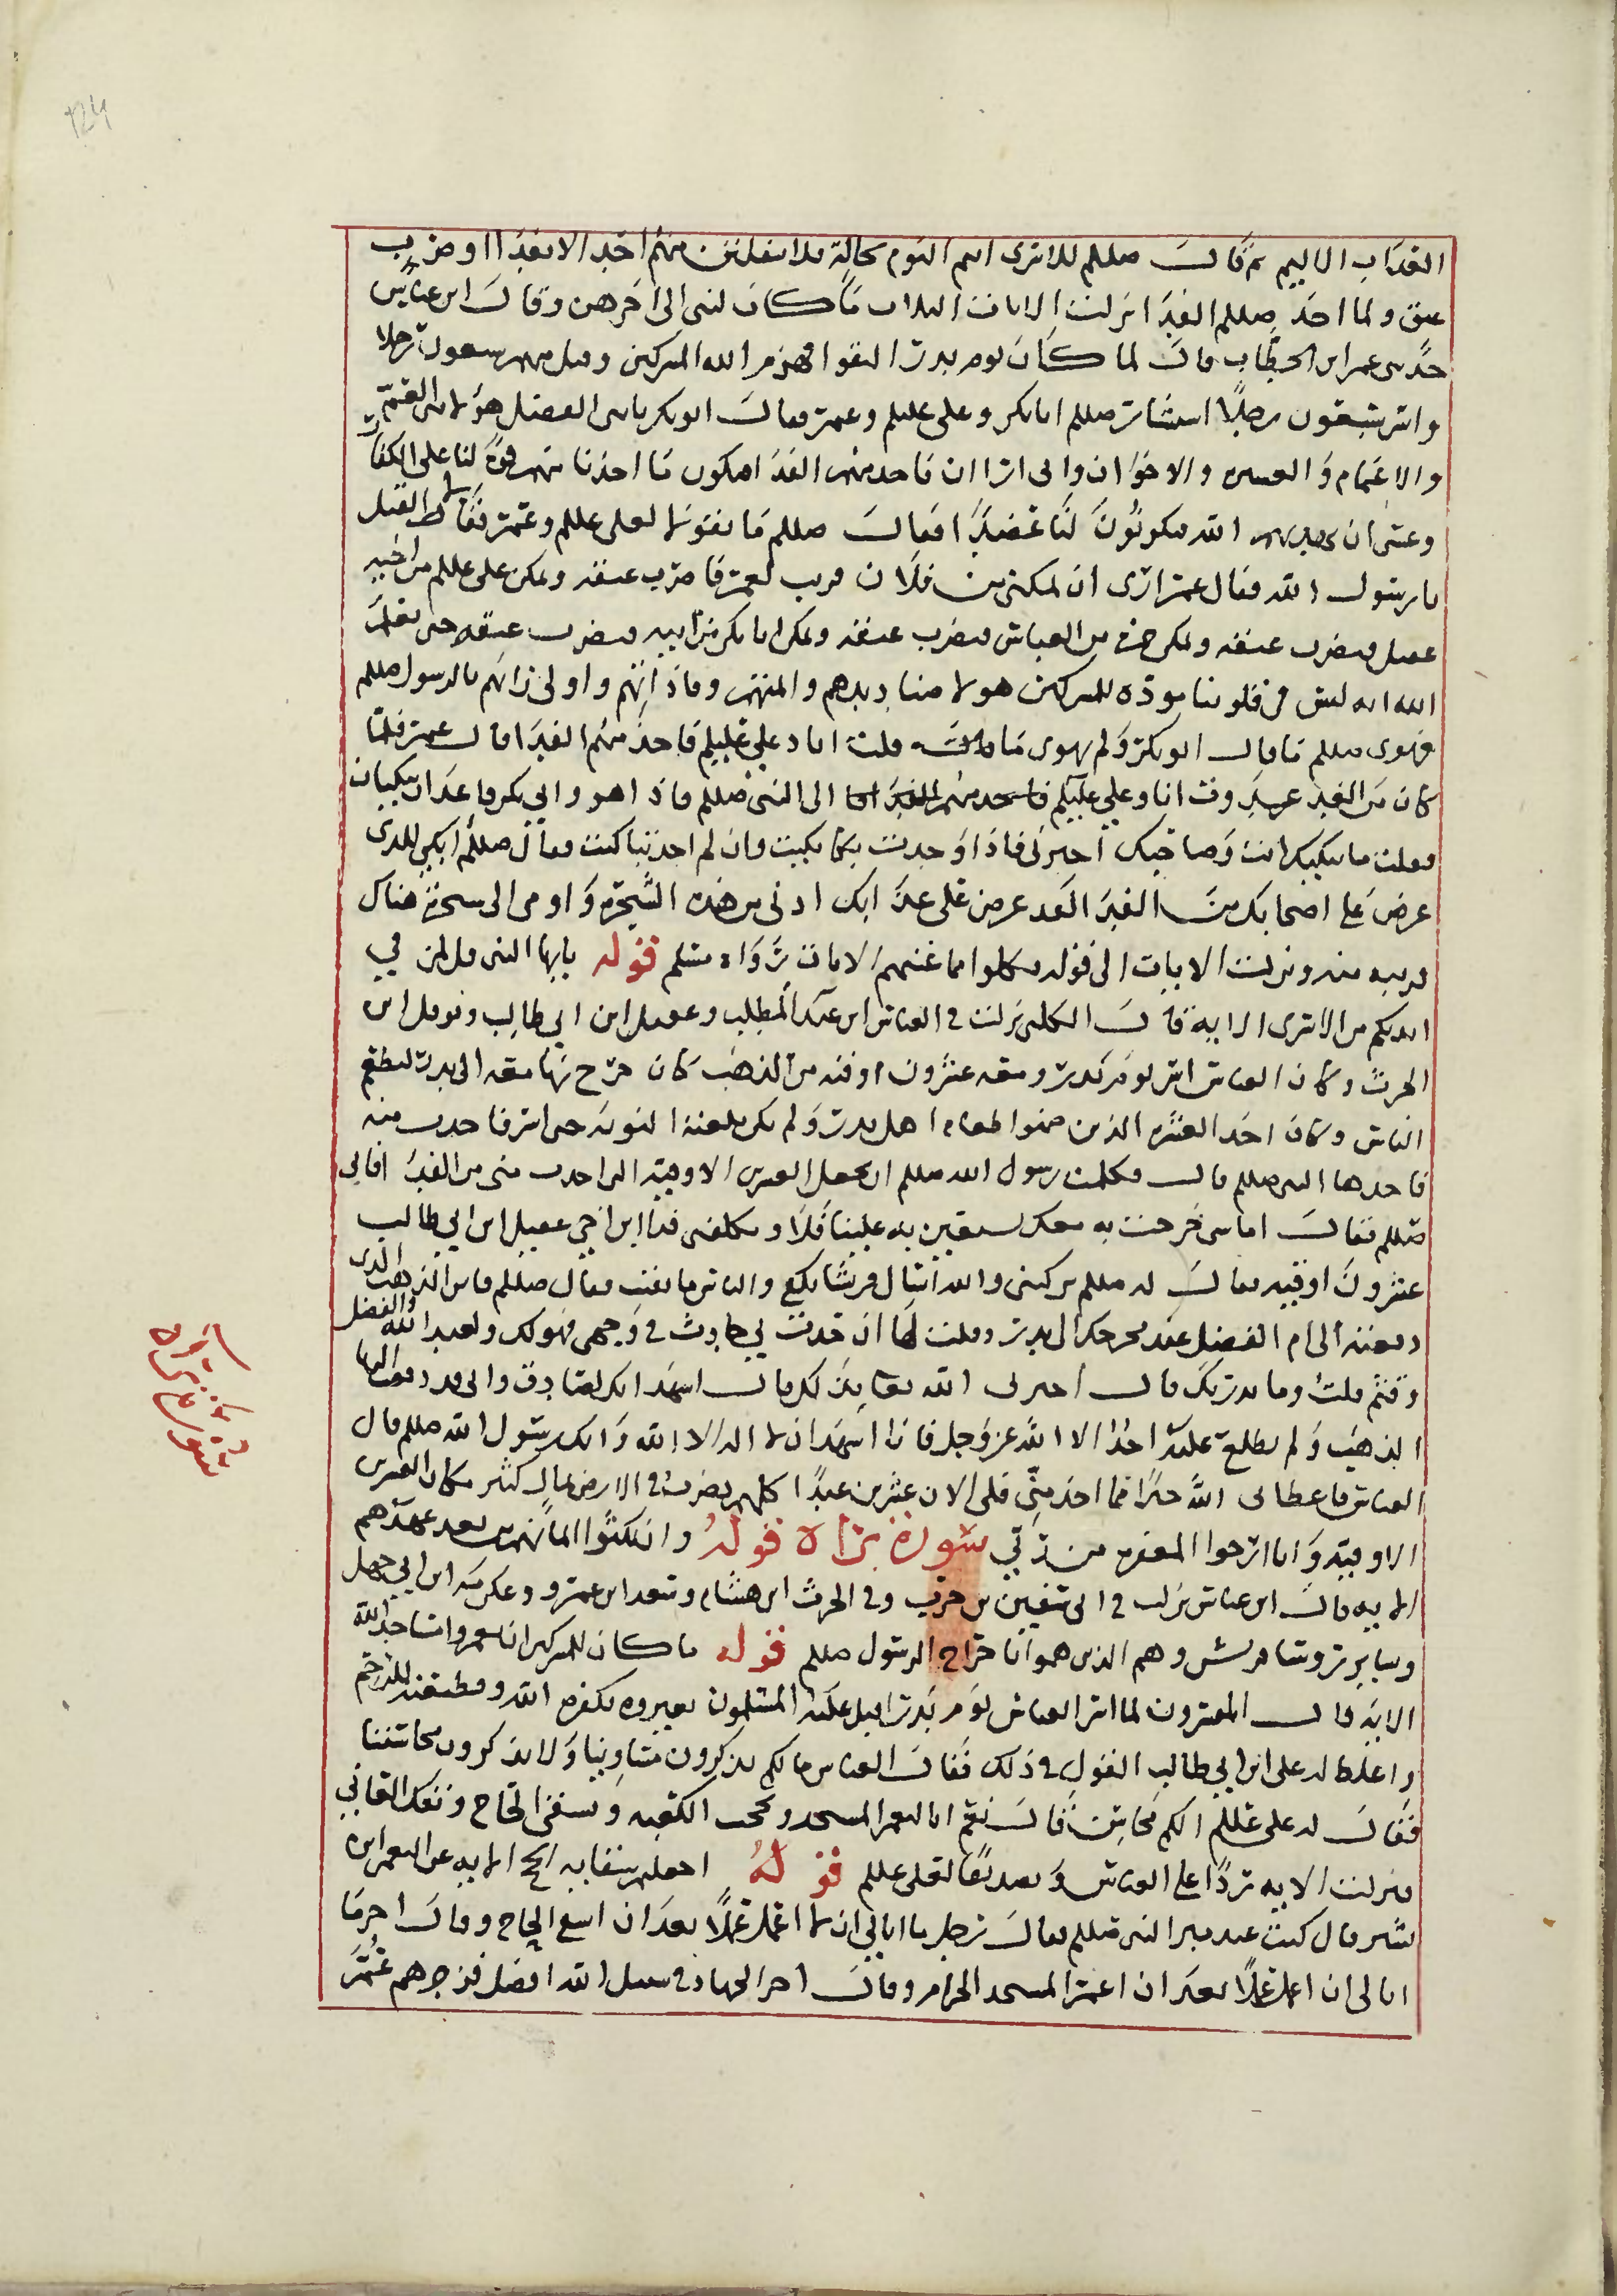 العذاب الاليم ثم قال صللم للاسرى انتم اليوم بحالة فلا ينفلتن منهم احد الا بفداء او ضرب
عنق ولما اخذ صللم الفدا انزلت الايات الثلاث ما كان لنبى الى اخرهن وقال ابن عباس
حدثنى عمر ابن الخطاب قال لما كان يوم بدر التقوا فهزم الله المشركين وقتل منهم سبعون رجلا
واسر سبعون رجلا استشار صللم ابا بكر وعلى عليلم وعمر فقال ابو بكر يا نبى الله هؤلا بنى العم
والاعمام والعشيره والاخوان وانى ارا ان ناخذ منهم الفدا فيكون ما اخذنا منهم قوة لنا على الكفار
وعسى ان يهديهم الله فيكونون لنا عضدا فقال صللم ما تقولا لعلى عللم وعمر فقالا القتل
يا رسول الله فقال عمر ارى ان تمكننى من فلان قريب لعمر فاضرب عنقه وتمكن على عللم من اخيه
عقيل فيضرب عنقه وتمكن حمزه من العباس فيضرب عنقه وتمكن ابا بكر من ابنه فيضرب عنقه حتى يعلم
الله انه ليس فى قلوبنا موده للمشركين هولا صناديدهم وائمتهم وقاداتهم واولى الرايهم بالرسول صللم
فهوى صللم ما قال ابو بكر ولم يهوى ما قلت انا وعلي عليلم فاخذ منهم الفدا قال عمر فلما
كان من الغد غدوت انا وعلي عليلم الى النبى صللم فاذا هو وابى بكر قاعدان يبكيان
فقلت ما يبكيك انت وصاحبك اخبرنى فاذا وجدت بكا بكيت وان لم اجد تباكيت فقال صللم ابكي للذى
عرض على اصحابك من الفدا لقد عرض على عذابكم ادنى من هذه الشجرة واومى الى شجرة هناك
قريبه منه ونزلت الايات الى قوله فكلوا مما غنمتم الايات رواه مسلم قوله يايها النبى قل لمن في
ايديكم من الاسرى الايه قال الكلبى نزلت فى العباس ابن عبد المطلب وعقيل ابن ابي طالب ونوفل ابن
الحرث وكان العباس اسر يوم بدر ومعه عشرون اوقيه من الذهب كان خرج بها معه الى بدر ليطعم
الناس وكان احد العشره الذين ضمنوا طعام اهل بدر ولم يكن بلغته النوبه حتى اسر فاخذت منه
فاخذها النبى صللم قال فكلمت رسول الله صللم ان يجعل العشرين الاوقيه التى اخذت منى من الفدا فابى
صللم فقال اما شى خرجت به معك تستعين به علينا فلا وكلفنى فدا ابن اخي عقيل ابن ابي طالب
عشرون اوقيه فقال له صللم تركتنى والله اسال قريشا بكفي والناس ما بقيت فقال صللم فاين الذهب الذى
دفعته الى ام الفضل عند مخرجك الى بدر وقلت لها ان حدث بي حادث فى وجهى فهو لك ولعبد الله والفضل
وقثم قلت وما يدريك قال اخبرنى الله تعا بذلك قال اشهد انك لصادق وانى قد دفعت اليها
الذهب ولم يطلع عليه احدا الا الله عز وجل فانا اشهد ان لا اله الا الله وانك رسول الله صللم قال
العباس فاعطانى الله خيرا مما اخذ منى فلى الان عشرين عبدا كلهم يضرب فى الارض بمال كثير مكان العشرين
الاوقيه وانا ارجوا المغفره من ربي سورة براة قوله وان نكثوا ايمانهم من بعد عهدهم
الايه قال ابن عباس نزلت فى ابى سفين بن حرب وفى الحرث ابن هشام وسعد ابن عمرو وعكرمه ابن ابي جهل
وساير روسا قريش وهم الذين هموا باخراج الرسول صللم قوله ما كان للمشركين ان يعمروا مساجد الله
الايه قال المفسرون لما اسر العباس يوم بدر اقبل عليه المسلمون يعيروه بكفره الله وقطيعته للرحم
واغلظ له على ابن ابي طالب القول فى ذلك فقال العباس مالكم تذكرون مساوينا ولا تذكرون محاسننا
فقال له على عللم الكم محاسن قال نعم انا لنعمر المسجد ونحجب الكعبه ونسقى الحاج ونفك العاني
فنزلت الايه ردا على العباس وتصديقا لعلى عللم قوله اجعلتم سقايه الحج الايه عن النعمن ابن
بشير قال كنت عند منبر النبى صللم فقال رجل ما ابالي ان لا اعمل عملا بعد ان اسقي الحاج وقال اخر ما
ابالى ان لا اعمل عملا بعد ان اعمر المسجد الحرام وقال اخر الجهاد فى سبيل الله افضل فزجرهم عمر
تفسير
سورة براة